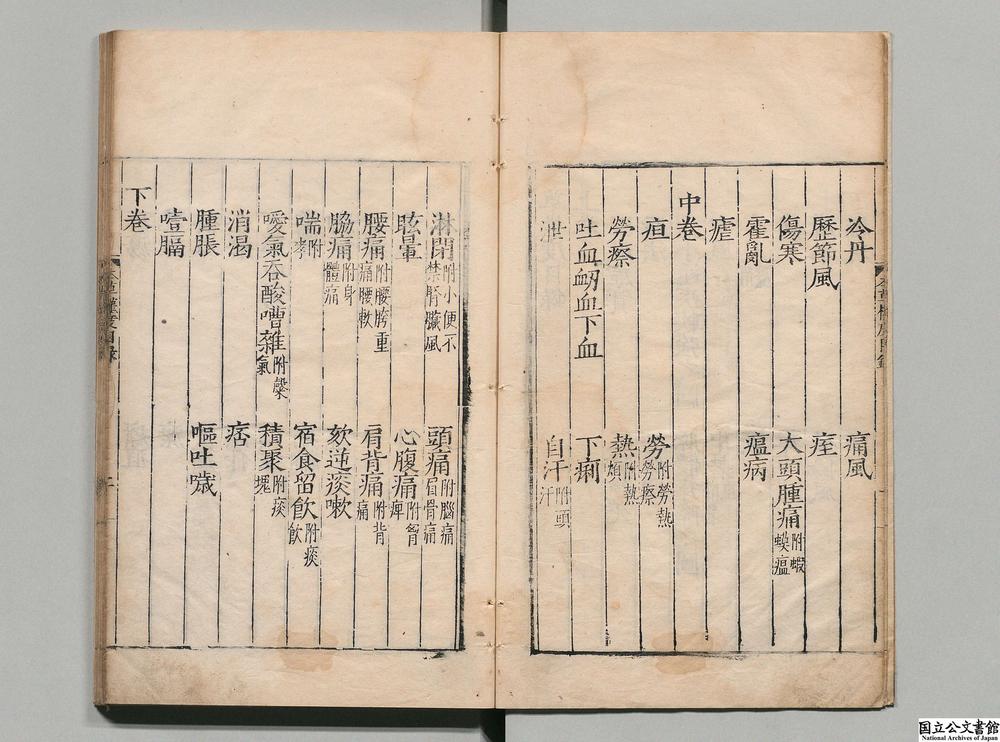 冷丹　痛風
歷節風　痓
傷寒　大頭腫痛附蝦蟆瘟
霍亂　瘟病
瘧
中卷
疸　勞附勞熱勞瘵
勞瘵　熱附熱煩
吐血衂血下血　下痢
泄　自汗附頭汗
淋閉附小便不禁腎臟風　頭痛附腦痛眉骨痛
眩暈　心腹痛附胷痺
腰痛附腰胯重痛腰軟　肩背痛附背痛
脇痛附身體痛　欬逆痰嗽
喘附哮　宿食留飲附痰飲
噯氣吞酸嘈雜附𣎴氣　積聚附痰塊
消渴　痞
腫脹　嘔吐噦
噎膈
下卷
国立公文書館
National Archives of Japan